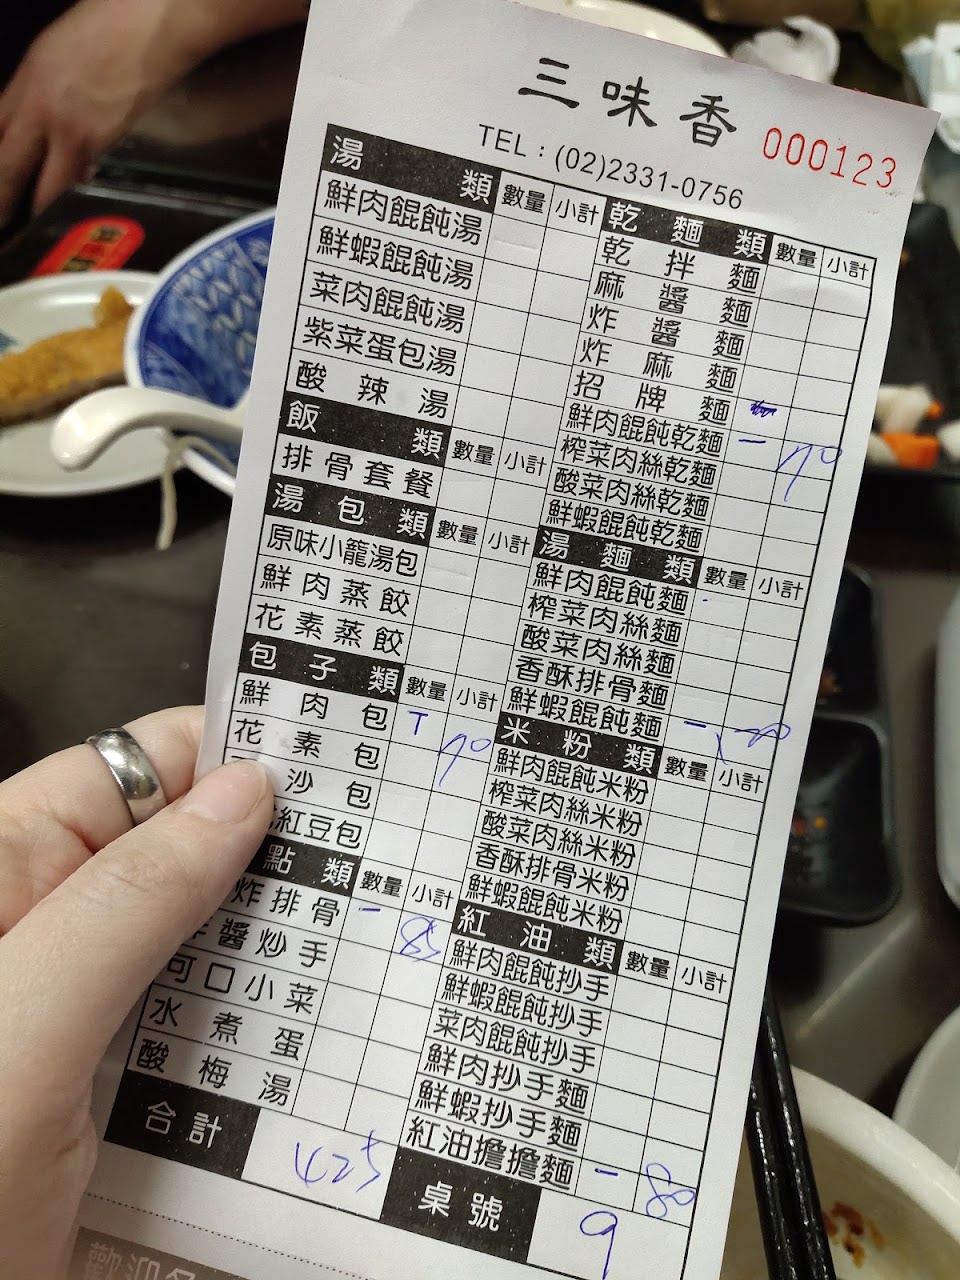 三味香
TEL：(02)2331-0756
000123
湯類 數量 小計
鮮肉餛飩湯
鮮蝦餛飩湯
菜肉餛飩湯
紫菜蛋包湯
酸辣湯
飯類 數量 小計
排骨套餐
湯包類 數量 小計
原味小籠湯包
鮮肉蒸餃
花素蒸餃
包子類 數量 小計
鮮肉包 T 70
花素包
沙包
紅豆包
點類 數量 小計
炸排骨 - 85
醬炒手
可口小菜
水煮蛋
酸梅湯
合計 425
乾麵類 數量 小計
乾拌麵
麻醬麵
炸醬麵
炸麻麵
招牌麵
鮮肉餛飩乾麵 - 70
榨菜肉絲乾麵
酸菜肉絲乾麵
鮮蝦餛飩乾麵
湯麵類 數量 小計
鮮肉餛飩麵
榨菜肉絲麵
酸菜肉絲麵
香酥排骨麵
鮮蝦餛飩麵 - 120
米粉類 數量 小計
鮮肉餛飩米粉
榨菜肉絲米粉
酸菜肉絲米粉
香酥排骨米粉
鮮蝦餛飩米粉
紅油類 數量 小計
鮮肉餛飩抄手
鮮蝦餛飩抄手
菜肉餛飩抄手
鮮肉抄手麵
鮮蝦抄手麵
紅油擔擔麵 - 80
桌號 9
歡迎